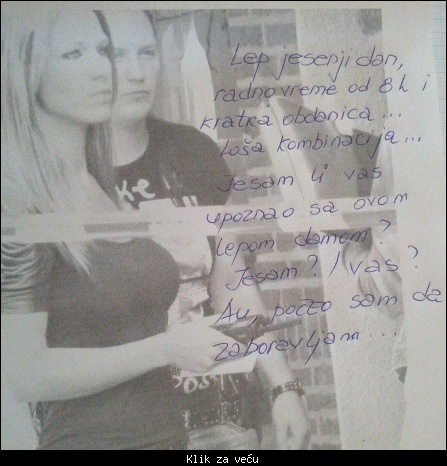 Lep jesenji dan,
radno vreme od 8h i
kratka obdanica...
Loša kombinacija...
Jesam li vas
upoznao sa ovom
lepom damom?
Jesam? I vas?
Au, počeo sam da
zaboravljam...
Klik za veću